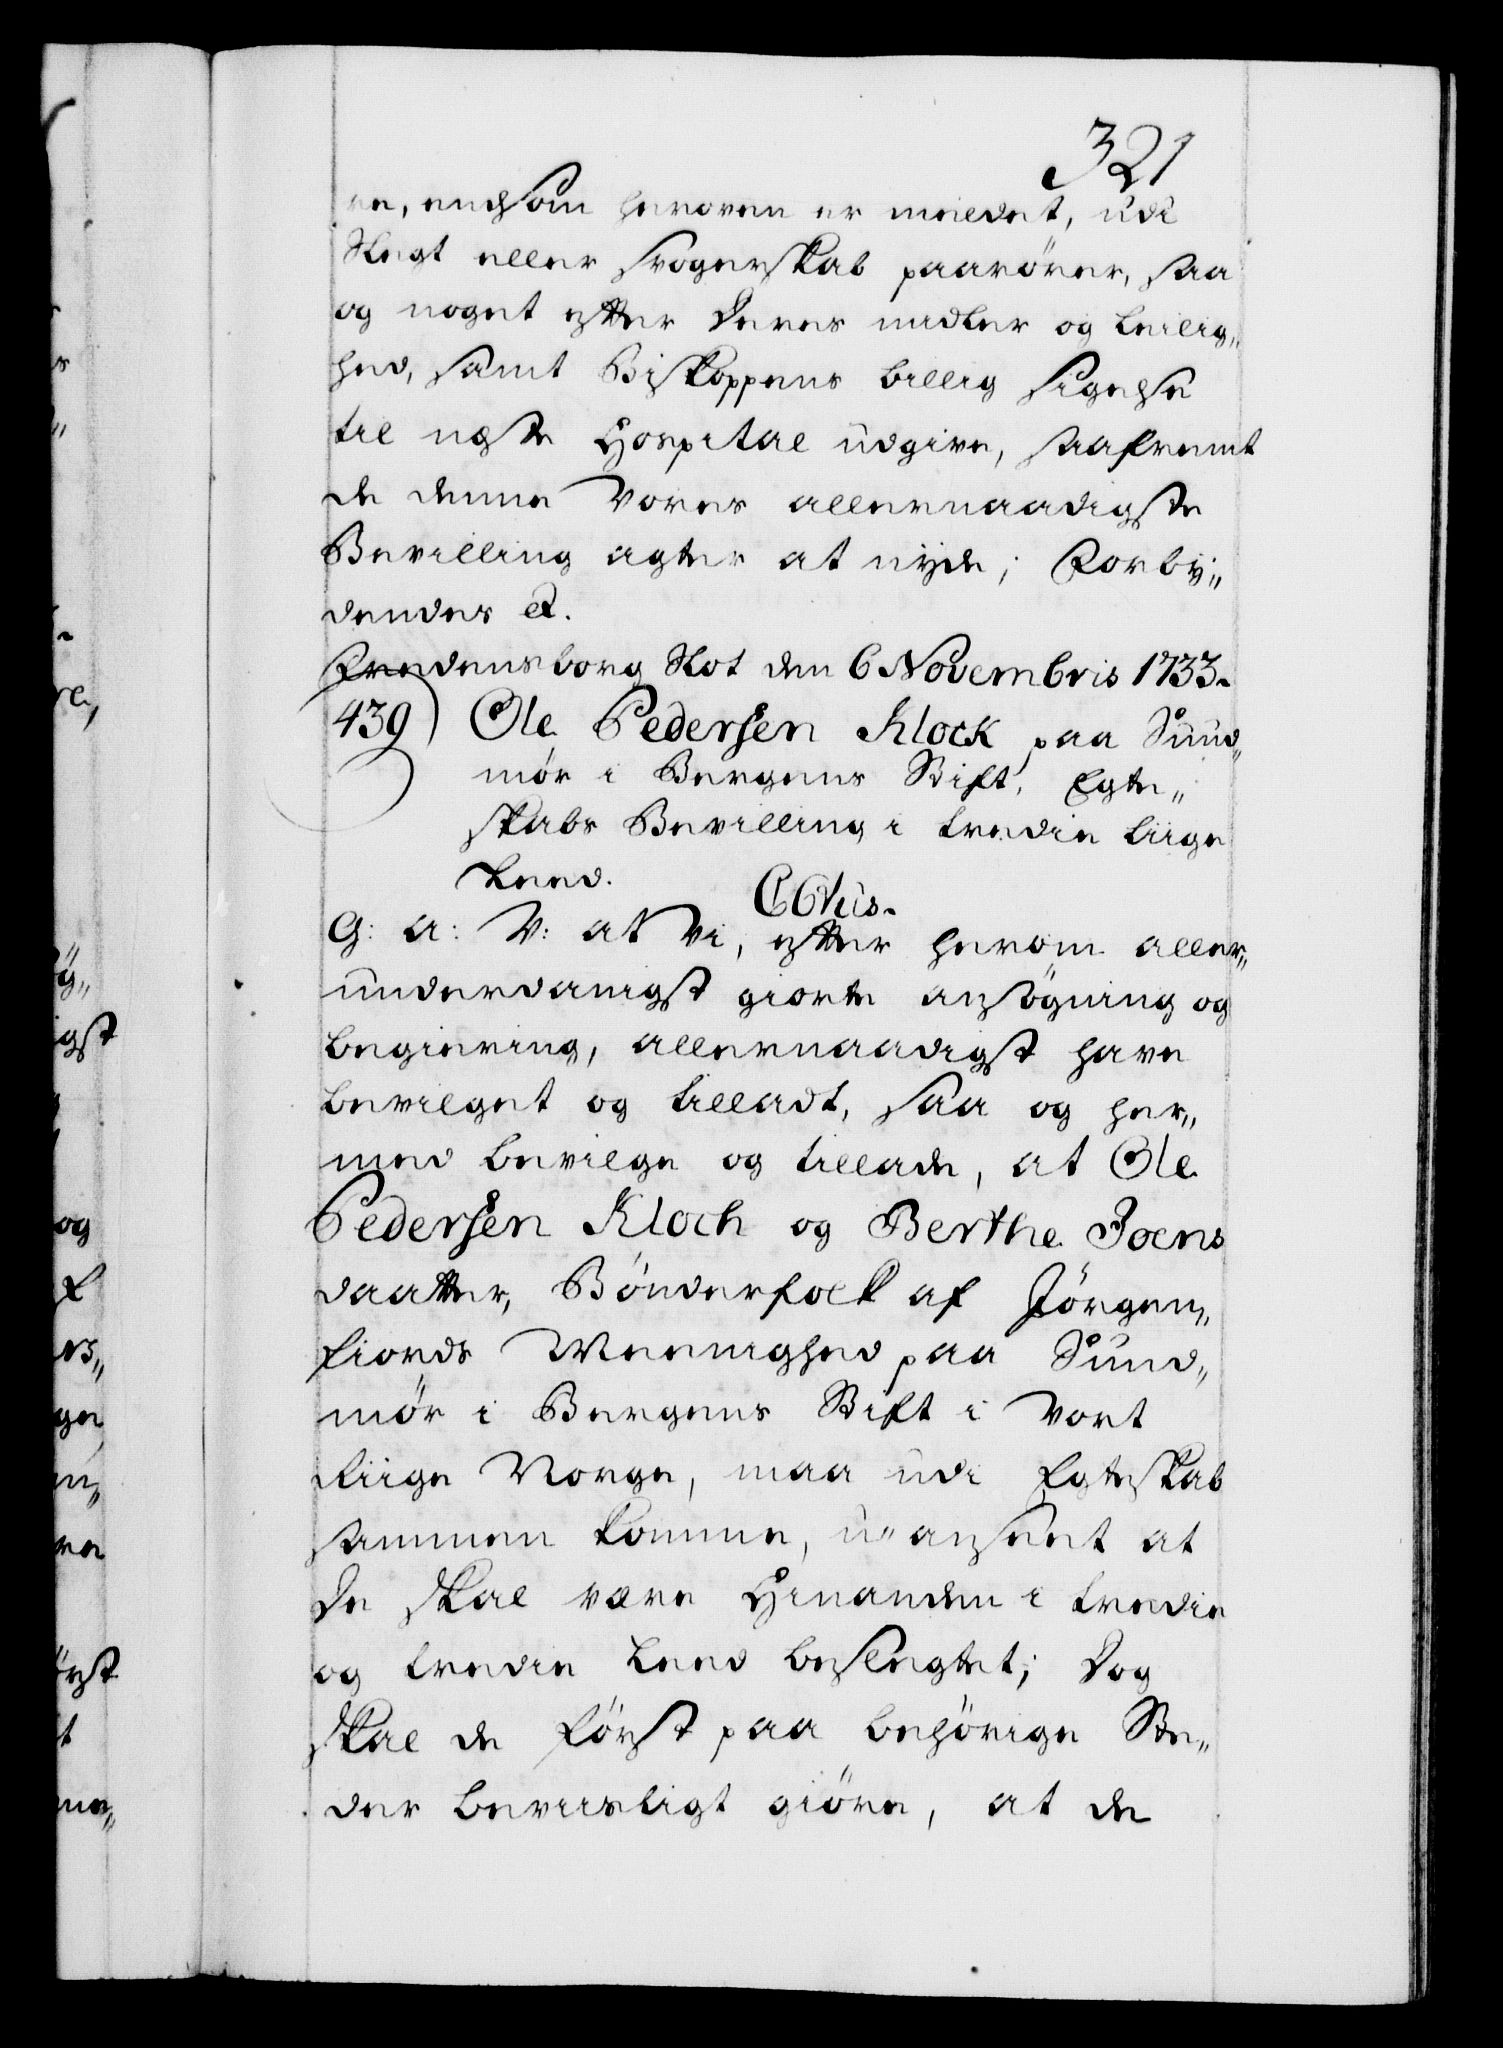 321
re, end som heroven er meldet, udi
Slegt eller Svogerskab paarörer, saa
og noget efter deres midler og leilig„
hed, samt Biskoppens billig sigelse
til neste Hospital udgive, saafremt
de denne Vores allernaadigste
Bevilling agter at nyde; Forby„
dendes &.
Fredensborg Slot den 6 Novembris 1733.
439) Ole Pedersen Klock paa Sund„
mör i Bergens Stift, Egte„
skabs Bevilling i tredie liige
Leed.
C6tus.
G: A: V: at Vi, efter herom aller„
underdanigst giorte ansögning og
begiering, allernaadigst have
bevilget og tilladt, saa og her„
med bevilge og tillade, at Ole
Pedersen Kloch og Berthe Joens
daatter, Bönderfolk af Jörgen„
fiords Meenighed paa Sund„
mör i Bergens Stift i Vort
Riige Norge, maa udi Egteskab
sammen komme, u„anseet at
De skal være Hinanden i tredie
og tredie Leed beslegtet; Dog
skal de först paa behörige Ste„
der beviisligt giöre, at de